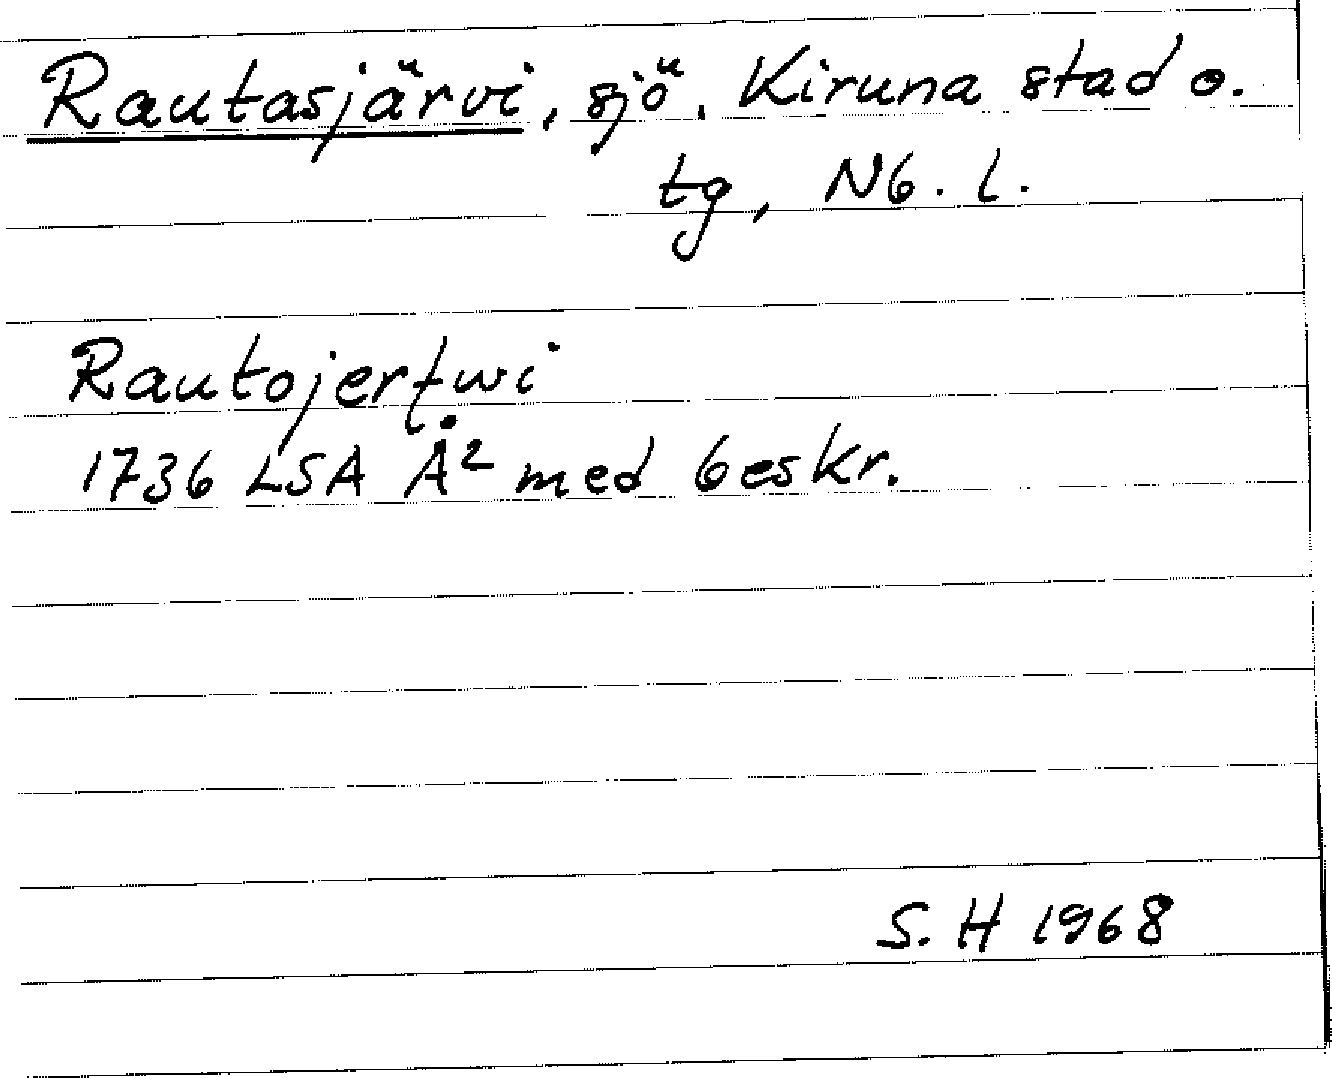 Rautasjärvi, sjö. Kiruna stad o.
tg, Nb. l.
Rautojerfwi
1736 LSA Å² med beskr.
S. H 1968